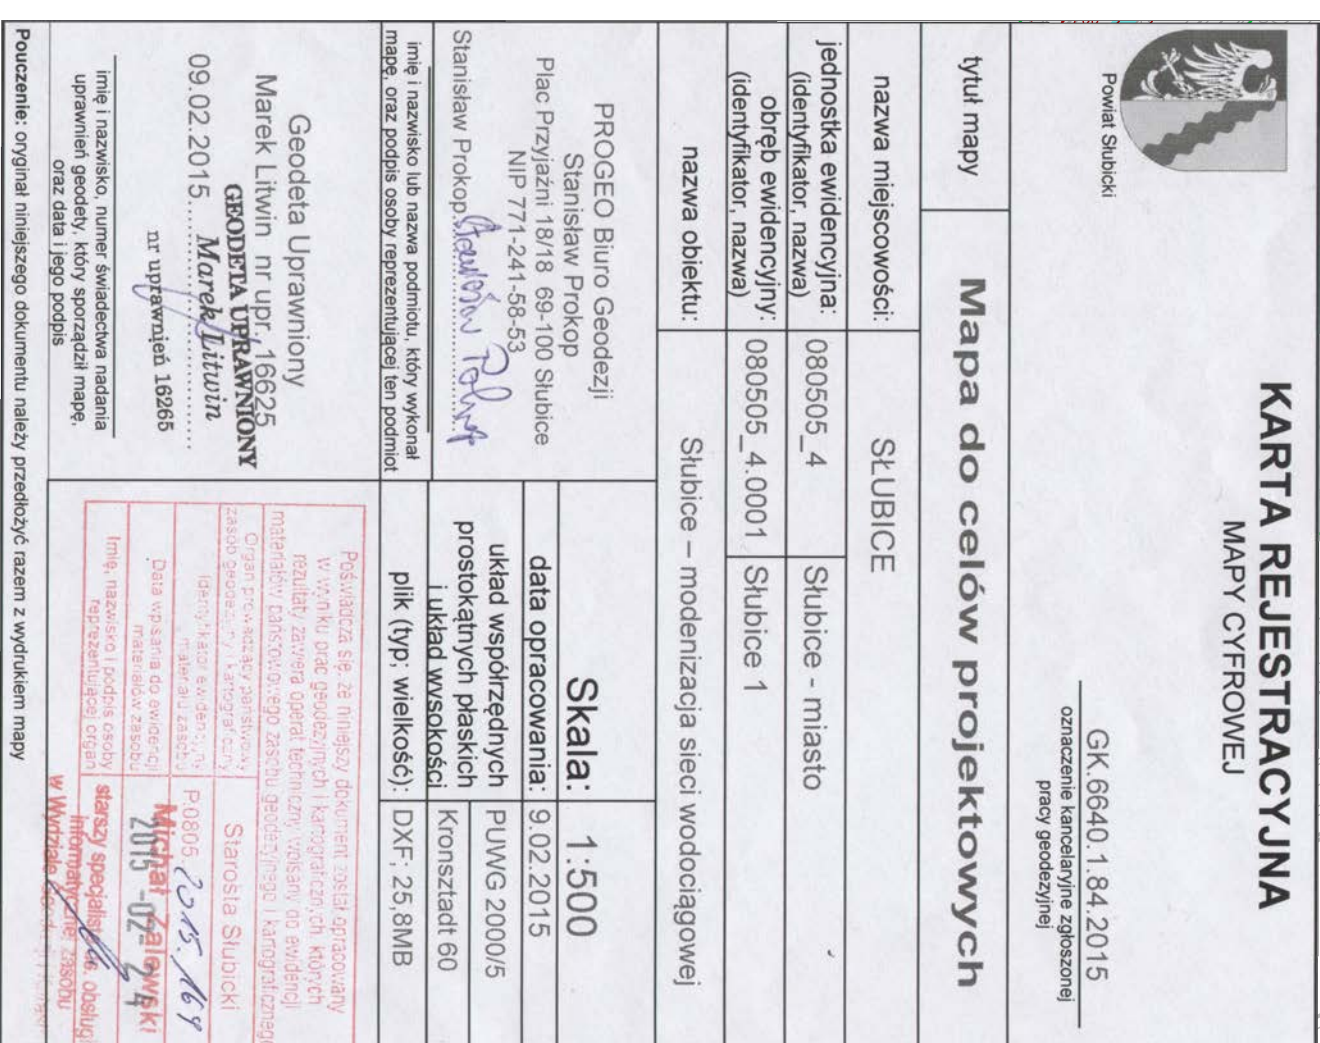 KARTA REJESTRACYJNA
MAPY CYFROWEJ
Powiat Słubicki
GK.6640.1.84.2015
oznaczenie kancelaryjne zgłoszonej
pracy geodezyjnej
tytuł mapy
Mapa do celów projektowych
nazwa miejscowości:
SŁUBICE
jednostka ewidencyjna:
(identyfikator, nazwa)
080505_4
Słubice - miasto
obręb ewidencyjny:
(identyfikator, nazwa)
080505_4.0001
Słubice 1
nazwa obiektu:
Słubice – modenizacja sieci wodociągowej
PROGEO Biuro Geodezji
Stanisław Prokop
Plac Przyjaźni 18/18 69-100 Słubice
NIP 771-241-58-53
Stanisław Prokop
imię i nazwisko lub nazwa podmiotu, który wykonał
mapę, oraz podpis osoby reprezentującej ten podmiot
Skala: 1:500
data opracowania: 9.02.2015
układ współrzędnych
prostokątnych płaskich
i układ wysokości
PUWG 2000/5
Kronsztadt 60
plik (typ; wielkość): DXF; 25,8MB
Geodeta Uprawniony
Marek Litwin nr upr. 16625
GEODETA UPRAWNIONY
09.02.2015 Marek Litwin
nr uprawnień 16265
imię i nazwisko, numer świadectwa nadania
uprawnień geodety, który sporządził mapę,
oraz data i jego podpis
Poświadcza się, że niniejszy dokument został opracowany
w wyniku prac geodezyjnych i kartograficznych, których
rezultaty zawiera operat techniczny wpisany do ewidencji
materiałów państwowego zasobu geodezyjnego i kartograficznego
Organ prowadzący państwowy
zasób geodezyjny i kartograficzny
Starosta Słubicki
Identyfikator ewidencyjny
materiału zasobu
P.0805.2015.169
Data wpisania do ewidencji
materiałów zasobu
2015 -02- 24
Michał Zalewski
Imię, nazwisko i podpis osoby
reprezentującej organ
starszy specjalista ds. obsługi
informatycznej zasobu
w Wydziale
Pouczenie: oryginał niniejszego dokumentu należy przedłożyć razem z wydrukiem mapy